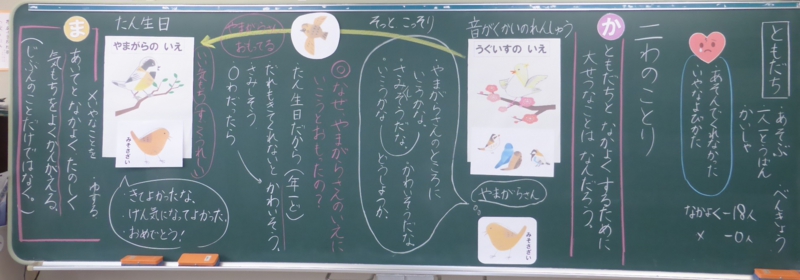 ともだち
・あそぶ ・べんきょう
・一人一とうばん
・かいしゃ
なかよく－18人
×　－0人
・あそんでくれなかった
・いやなよびかた
二わのことり
か
ともだちと なかよくするために
大せつなことは なんだろう。
音がくかいのれんしゅう
うぐいすの いえ
やまがらさん
みそさざい
・やまがらさんのところに
いこうかな。
・かわいそうだな
・さみそうだな。
・いこうかな
・どうしようか。
そっと こっそり
◎なぜ、やまがらさんのいえに
いこうとおもったの？
たん生日だから（年一心）
だれもきてくれないと かわいそう。
さみしそう。
○わだったら
やまがらに
たん生日
やまがらの いえ
みそさざい
・きてよかったな。
・げん気になってよかった。
・おめでとう！
ま
あいてとなかよく たのしく
×いやなことを
・ゆずる
気もちをよくかんがえる。
（じぶんのことだけではなく。）